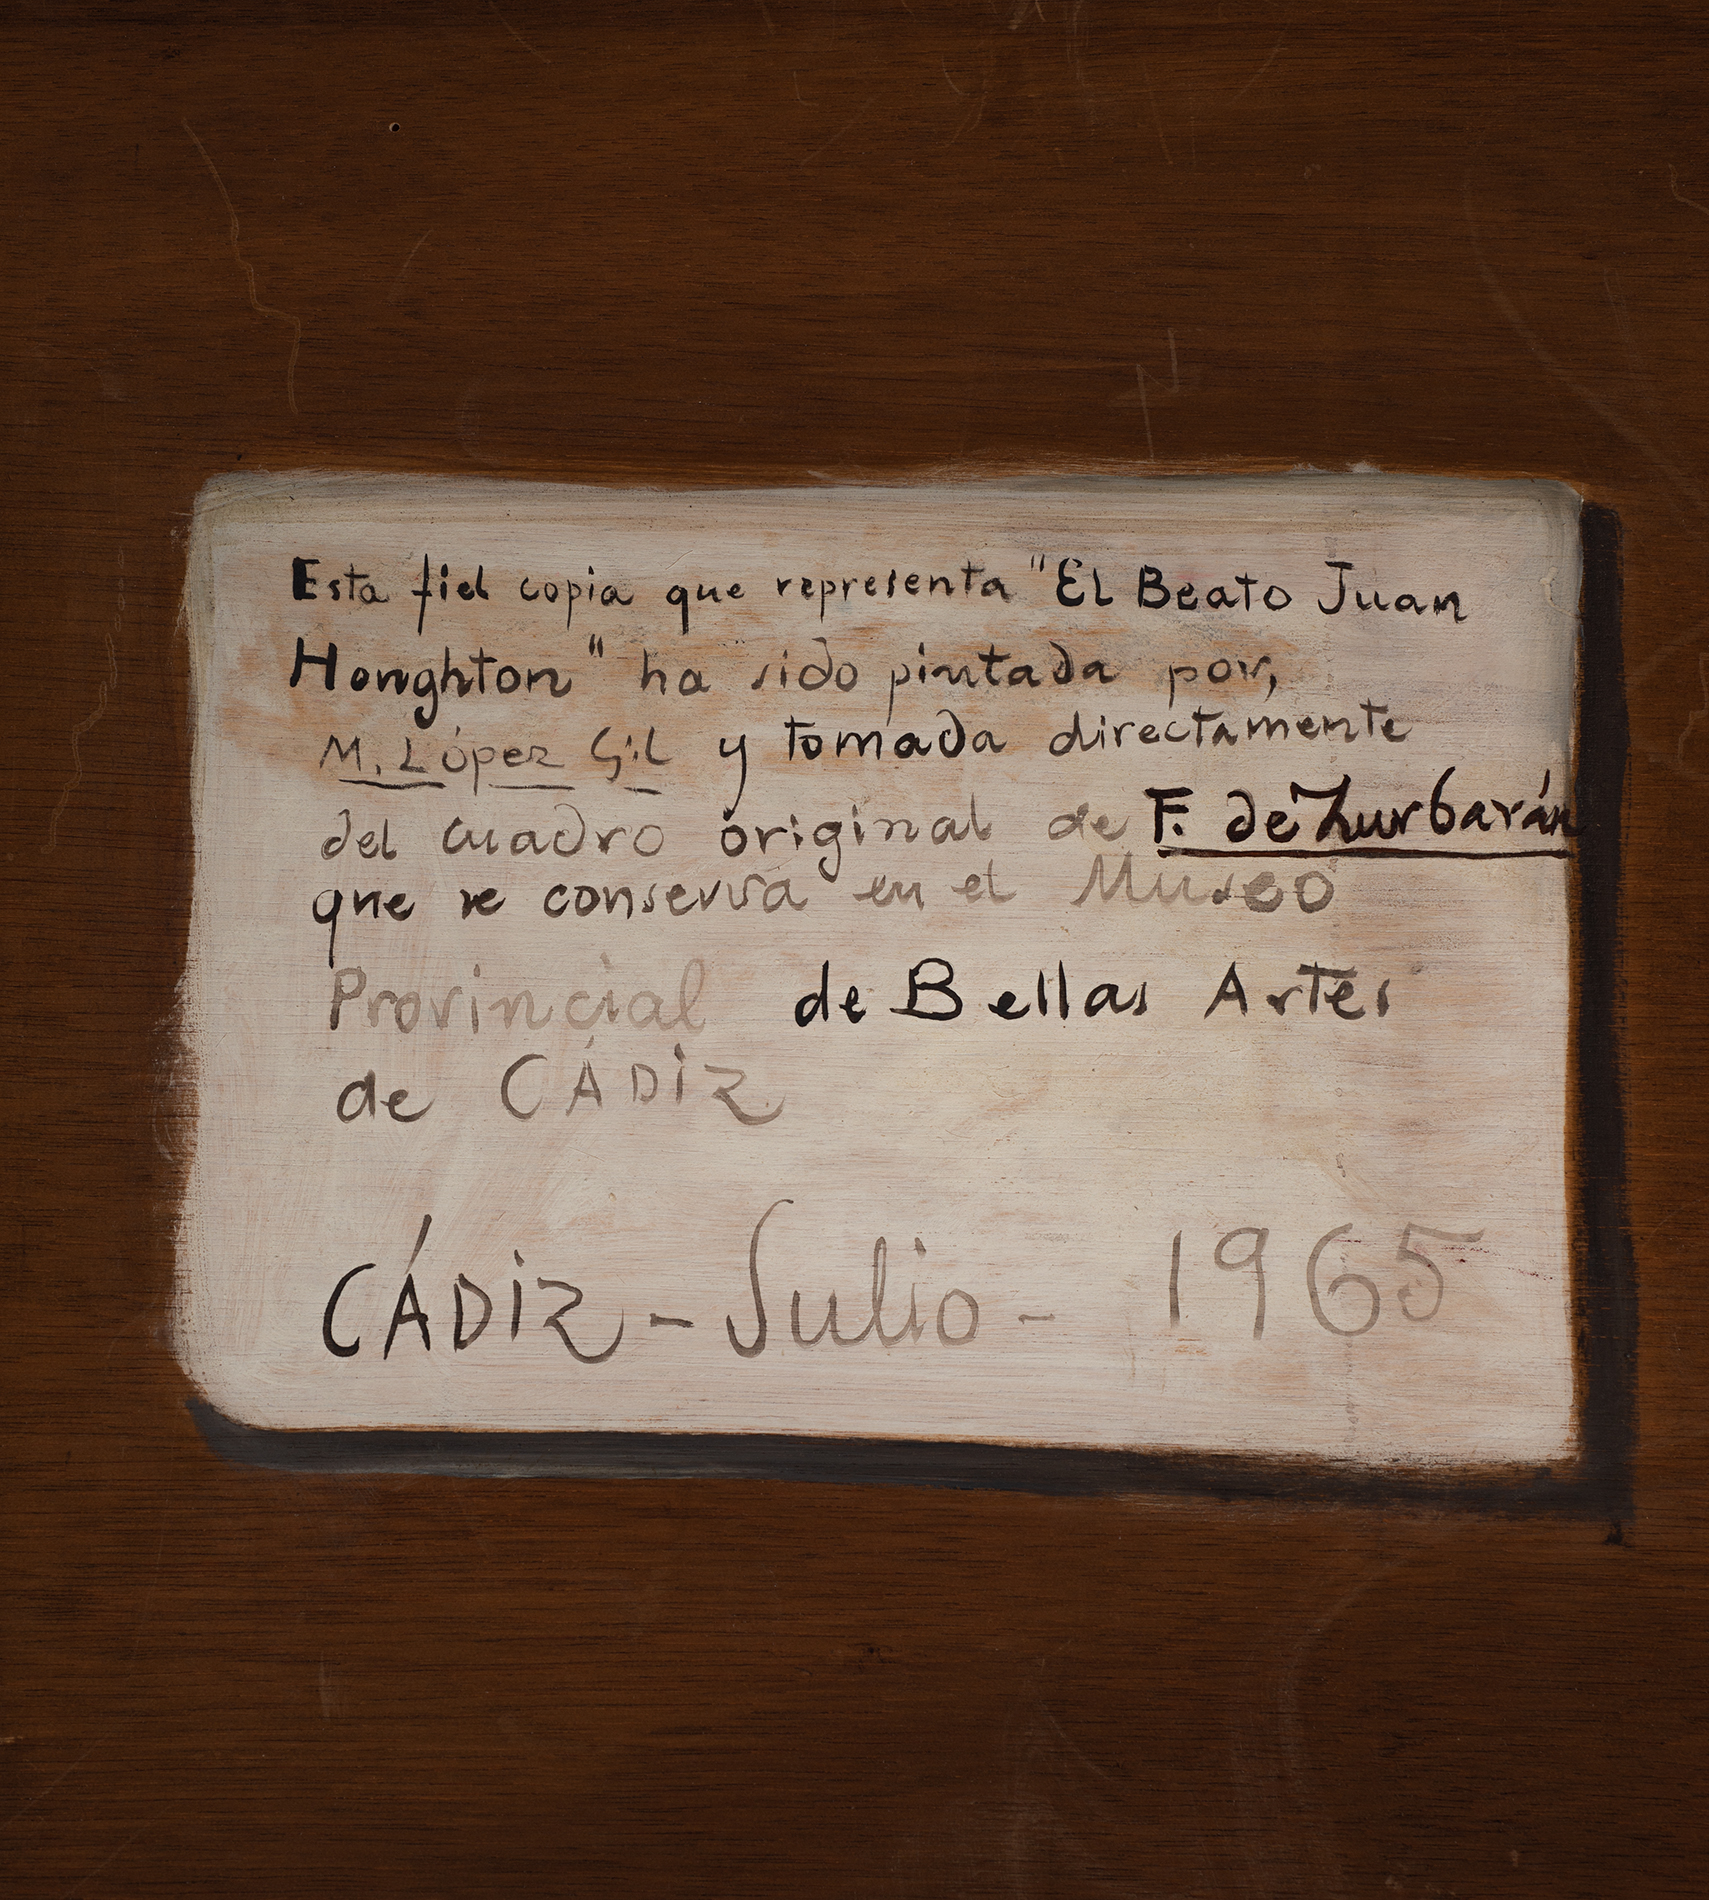 Esta fiel copia que representa "El Beato Juan
Honghton" ha sido pintada por,
M. López Gil y tomada directamente
del cuadro original de F. de Zurbarán
que se conserva en el Museo
Provincial de Bellas Artes
de CÁDIZ
CÁDIZ - Julio - 1965